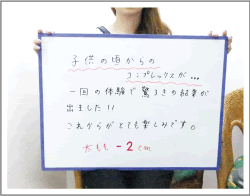 子供の頃からの
コンプレックスが…
一回の体験で驚きの結果が
出ました!!
これからがとても楽しみです。
太もも -2cm